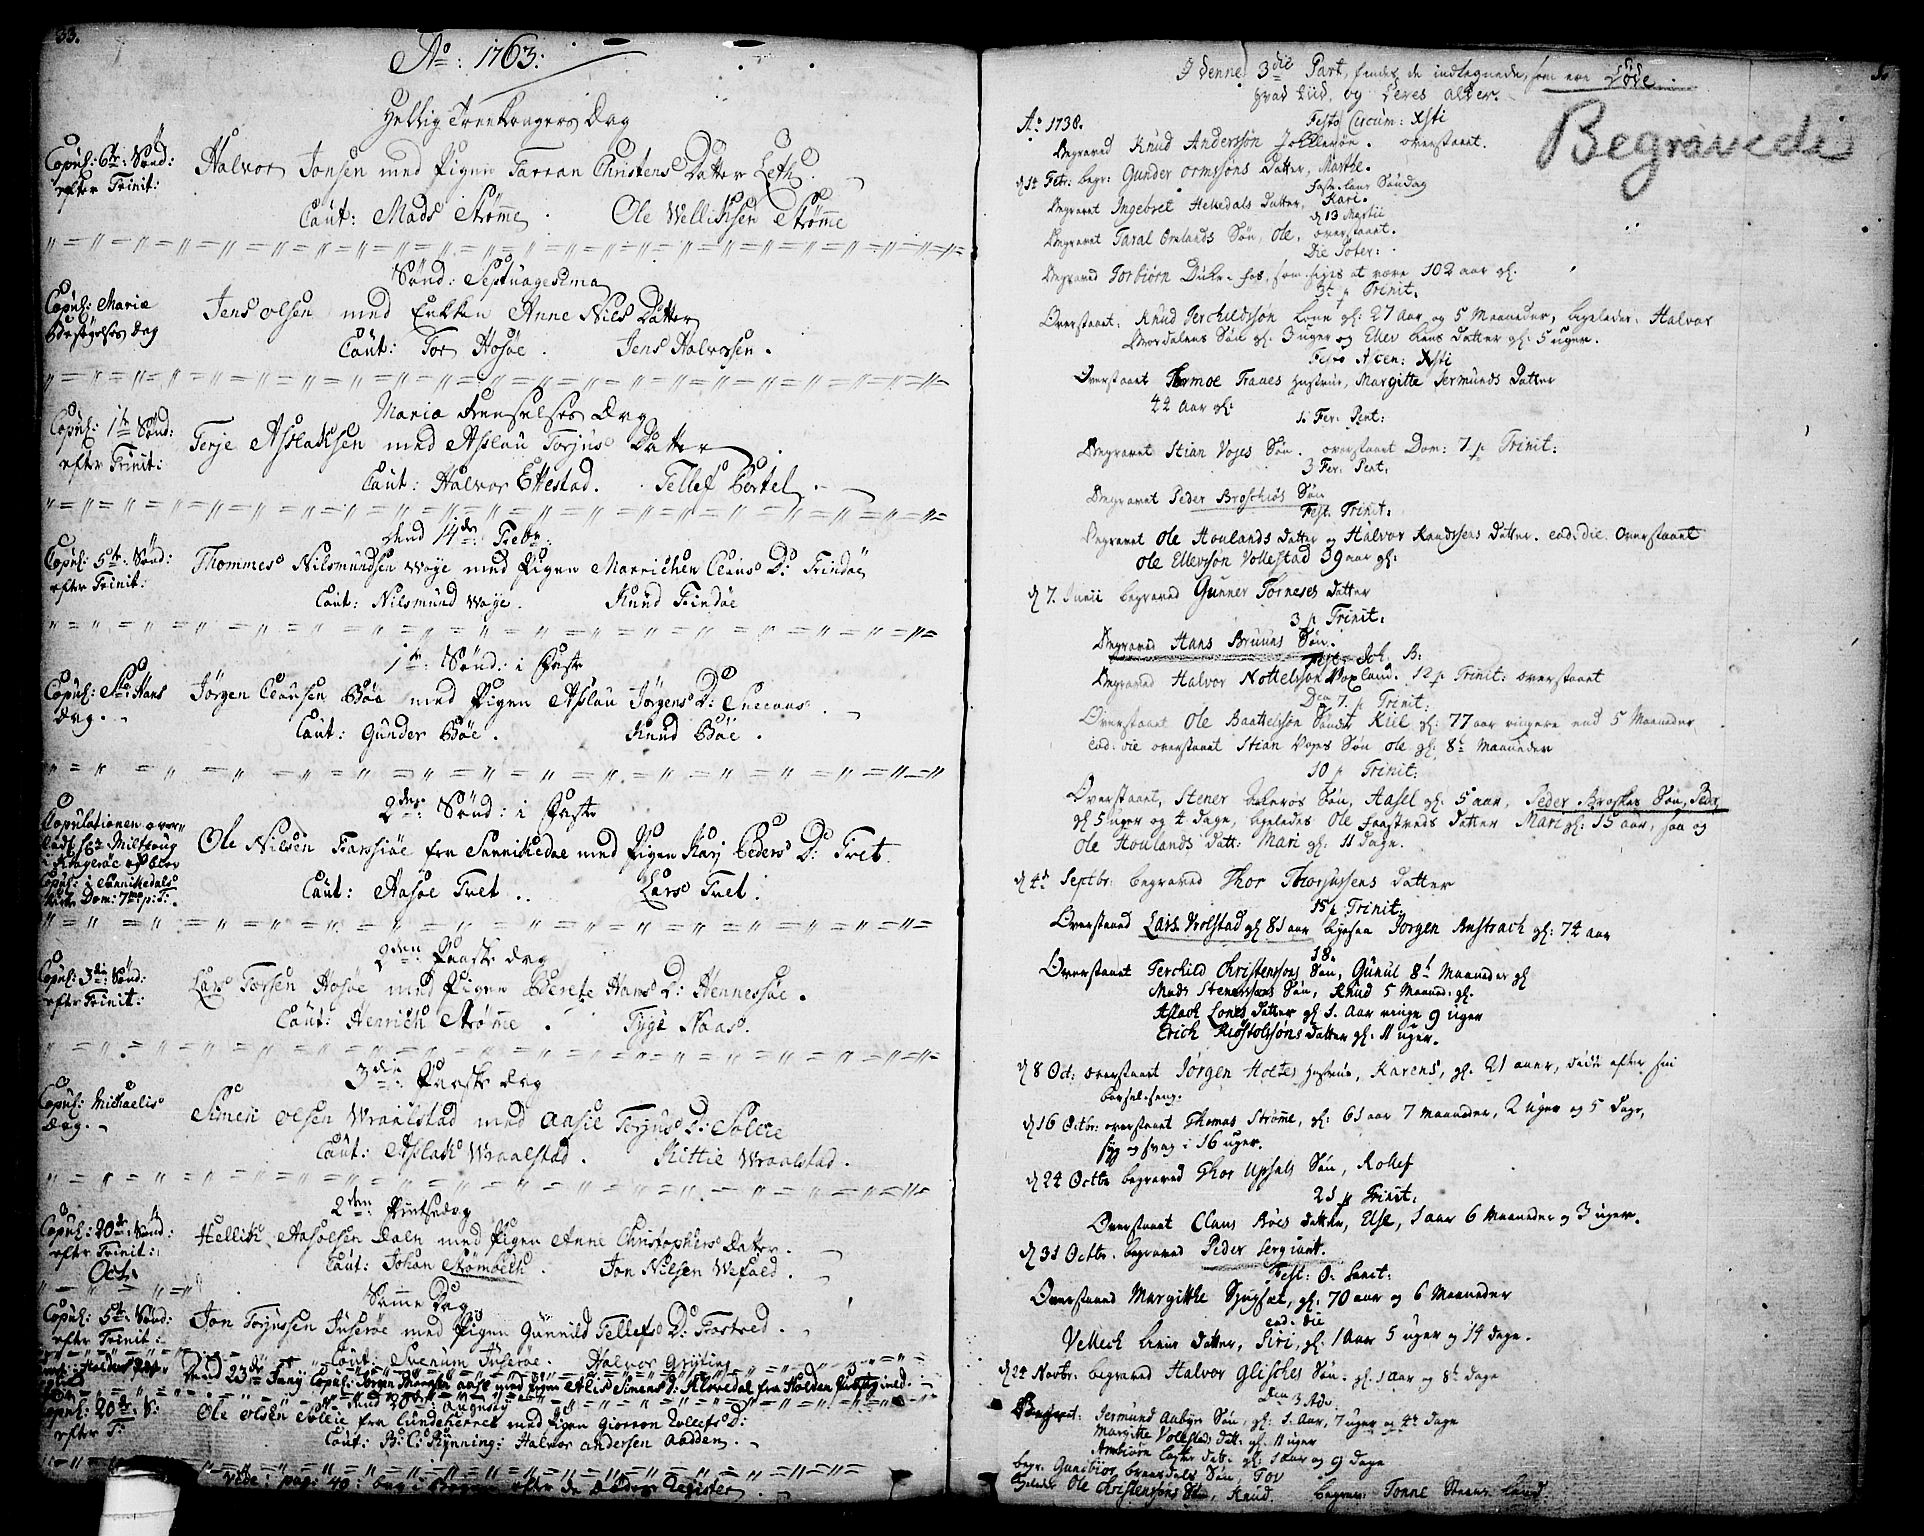 33.
Ao: 1763:
Hellig Tree Kongers Dag
Copul: 6te Sønd:
efter Trinit:
Halvor Jonsen med Pigen Tarran Christens Datter Leth.
Caut: Mads Strømme. Ole Wellichsen Strømme
Sønd: Septuagesima
Copul: Mariæ
Besøgelses Dag
Jens Olsen med Enken Anne Niels Datter
Caut: Tor Hosøe. Jens Halvorsen.
Mariæ Renselses Dag
Copul: 1te Sønd:
efter Trinit:
Terje Asslaksen med Asslau Torjus Datter
Caut: Halvor Ettestad. Tellef Bertel.
dend 14de Febr:
Copul: 5te Sønd:
efter Trinit:
Thommes Nilsmundsen Woye med Pigen Marrichen Claus D: Trindøe
Caut: Nilsmund Woye. Knud Trindøe
1te Sønd: i Faste
Copul: St: Hans
Dag.
Jørgen Clausen Bøe med Pigen Asslau Jørgens D:
Caut: Gunder Bøe. Knud Bøe.
2den Sønd: i Faste
Copulationen over
Dom: 7me p: T:
Ole Nilsen Tarsiøe fra Sannikedal med Pigen Karj Peders D: Tvet.
Caut: Aasøe Tvet.. Lars Tvet.
2den Paaske Dag
Copul: 3die Sønd:
efter Trinit:
Lars Torsen Hosøe med Pigen Berete Hans D: Hennessøe.
Caut: Henrich Strømme. Tyge Naas.
3die Paaske Dag
Copul: Michaelis
Dag.
Simen Olsen Wraalstad med Aasie Torjus D: Sollie
Caut: Aslak Wraalstad. Kittie Wraalstad.
2den Pintsedag
Copul: 20de Sønd:
efter Trinit:
Oct:
Hellik Aasolsen Daln med Pigen Anne Christophers Datter.
Caut: Johan Strømbech. Jon Nilsen Wefald.
Samme Dag
Copul: 5te Sønd:
efter Trinit:
Jon Torjussen Juserøe med Pigen Gunnild Tellefs D: Torstved.
Caut: Evenum Juserøe. Halvor Grýting
dend 23de Junij Copul: Jørgen aase med Pigen Alis Simens D: Kløvedal fra Holden
dend 30te Augusty
Copul: 20de S:
efter T:
Ole Olsen Sollie fra Lundeherret med Pigen Giorron Rollefs D:
Caut: B: C: Rynning: Halvor Andersen Aadden.
vide: pag: 40: bag i Bogen efter de Dødes Register.
I denne 3die Part, findes de indtegnede, som ere Døde
hvad tiid, og deres alder.
Begravede
Ao 1738. Festo Circum: Xsti
Begraved Knud Andersøn Jellesøn. overstaaet.
d 14 Febr: begr: Gunder Ormssøns Datter, Marthe.
Faste lavns Søndag
Begravet Ingebret Hekedals Datter, Kari.
d 13 Martii
Begravet Taral Orslands Søn, Ole, overstaaet.
Die Soter:
Begraved Torbiørn Duke-fos, som siges at være 102 aar gl.
3t p Trinit.
Overstaaet: Knud Terchildssøn gl: 27 Aar og 5 Maaneder, ligeledes: Halvor
Mordalens Søn gl: 3 uger og Ellev Liens Datter gl: 5 uger.
Festo Ascen: Xsti
Overstaaet Thormoe Traaes Hustrue, Margitte Jermunds Datter
44 Aar gl:
1. Fer: Pent:
Begravet Stian Vojes Søn. overstaaet Dom: 7 p Trinit:
3 Fer: Pent:
Begravet Peder Broschiøs Søn
Fest: Trinit:
Begravet Ole Houlands Datter og Halvor Knudssens Datter. eod: die. Overstaaet
Ole Ellevsøn Vollestad 39 aar gl:
d 7. Junii begraved Gunner Tornæses Datter
3 p Trinit:
Begraved Hans Bruuns Søn.
Fest: Joh. B:
Begraved Halvor Nottelssøn Voxland. 12 p Trinit: overstaaet
Dca 7. p Trinit:
Overstaaet Ole Baattelssøn Søndst Kiel gl: 77 aar ringere end 5 Maaneder
eod: die overstaaet Stian Vojes Søn Ole gl: 8t Maaneder
10 p Trinit:
Overstaaet, Stener Søn, Aasel gl: 5 aar, Peder Broskes Søn, Peder
gl 5 uger og 4 dage, ligeledes Ole Faastveds Datter Mari gl: 15 aar, saa og
Ole Houlands Datt: Mari gl: 11 dage.
d 4d Septbr: begraved Thor Thorjussens Datter
15 p Trinit:
Overstaaed Lars Vrolstad gl 81 aar ligesaa Jorgen Anstrach gl: 74 aar
18.
Overstaaet Terchild Christenssøns Søn, Gunul 8t Maaneder gl
Mads Stenerssøns Søn, Knud 5 Maaned: gl.
Aslach Lones Datter gl 1. Aar ringe 9 uger
Erich Kiøstolssøns Datter gl: 11 uger.
d 8 Oct: overstaaet Jørgen Holtes Hustrue, Karens, gl: 21 aar, døde efter sin
barsel-seng.
d 16 Octbr: overstaaet Thomas Strømme, gl: 61 aar 7 Maaneder, 2 uger og 5 dage,
syg og svag i 16 uger.
d 24 Octbr begraved Thor Upsals Søn, Rollef
21 p Trinit:
Overstaaet Claus Bøes Datter, Else, 1 aar 6 Maaneder og 3 uger.
d 31 Octbr. begraved Peder Sergiant.
Fest: O: Sanct:
Overstaaed Margitthe gl: 70 aar og 6 Maaneder
eod: die
Vellech Liens Datter, Siri, gl: 1 Aar 5 uger og 14 dage.
d 24 Novbr: begraved Halvor Glisches Søn: gl: 1 Aar og 8t dage
Dca 3 Adv:
Begravet: Jermund Aabyes Søn, gl: 1. Aar, 7 uger og 4r Dage
Margitte Vollstad: Datt: gl: 11 uger
Ambiørn Datt: gl: 1 aar og 9 dage
begr: Gunebiør Søn, Tov
ligeledes Ole Christenssøns Søn, Knud begrav: Tonne